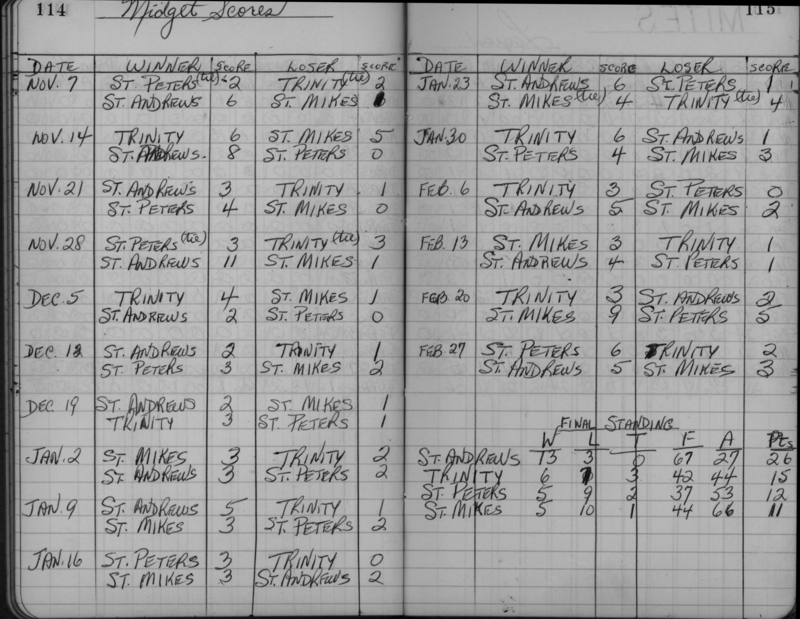 114
Midget Scores
DATE WINNER SCORE LOSER SCORE
NOV. 7 ST. PETERS (tie) 2 TRINITY (tie) 2
ST. ANDREWS 6 ST. MIKES
NOV. 14 TRINITY 6 ST. MIKES 5
ST. ANDREWS. 8 ST. PETERS 0
NOV. 21 ST. ANDREWS 3 TRINITY 1
ST. PETERS 4 ST. MIKES 0
NOV. 28 ST. PETERS (tie) 3 TRINITY (tie) 3
ST. ANDREWS 11 ST. MIKES 1
DEC. 5 TRINITY 4 ST. MIKES 1
ST. ANDREWS 2 ST. PETERS 0
DEC. 12 ST. ANDREWS 2 TRINITY 1
ST. PETERS 3 ST. MIKES 2
DEC. 19 ST. ANDREWS 2 ST. MIKES 1
TRINITY 3 ST. PETERS 1
JAN. 2 ST. MIKES 3 TRINITY 2
ST. ANDREWS 3 ST. PETERS 2
JAN. 9 ST. ANDREWS 5 TRINITY 1
ST. MIKES 3 ST. PETERS 2
JAN. 16 ST. PETERS 3 TRINITY 0
ST. MIKES 3 ST. ANDREWS 2
115
DATE WINNER SCORE LOSER SCORE
JAN. 23 ST. ANDREWS 6 ST. PETERS 1
ST. MIKES (tie) 4 TRINITY (tie) 4
JAN. 30 TRINITY 6 ST. ANDREWS 1
ST. PETERS 4 ST. MIKES 3
FEB. 6 TRINITY 3 ST. PETERS 0
ST. ANDREWS 5 ST. MIKES 2
FEB. 13 ST. MIKES 3 TRINITY 1
ST. ANDREWS 4 ST. PETERS 1
FEB. 20 TRINITY 3 ST. ANDREWS 2
ST. MIKES 9 ST. PETERS 5
FEB. 27 ST. PETERS 6 TRINITY 2
ST. ANDREWS 5 ST. MIKES 3
FINAL STANDING
W L T F A Pts
ST. ANDREWS 13 3 0 67 27 26
TRINITY 6 3 42 44 15
ST. PETERS 5 9 2 37 53 12
ST. MIKES 5 10 1 44 66 11